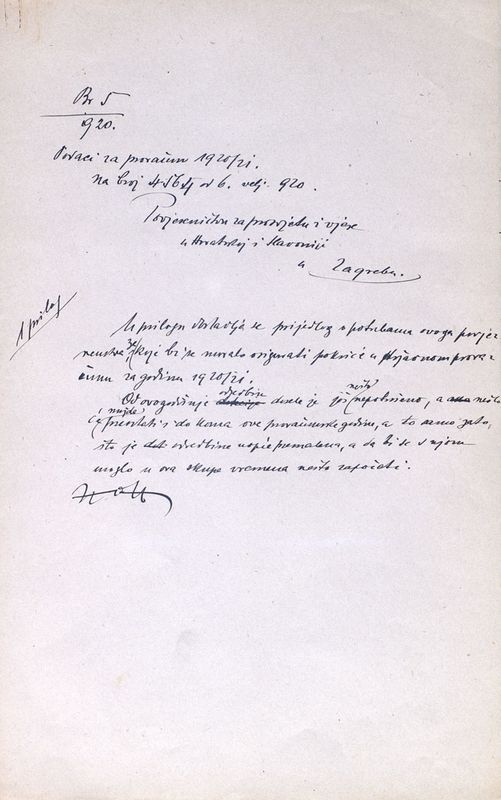 Br 5
920.
Podaci za proračun 1920/21.
na broj 4564 od 6. velj. 920.
Povjereničtvu za prosvjetu i vjere
u Hrvatskoj i Slavoniji
u Zagrebu.
1 prilog
U prilogu dostavlja se prijedlog o potrebama ovoga povjerenstva
za koje bi se moralo osigurati pokriće u
za godinu 1920/21.
Od ovogodišnje odredbine dosele je još nešto nepotrošeno, a nešto
i do konca ove proračunske godine, a to samo zato,
što je odredbina uopće premalena, a da bi se s njom
moglo u ova skupa vremena nešto započeti.